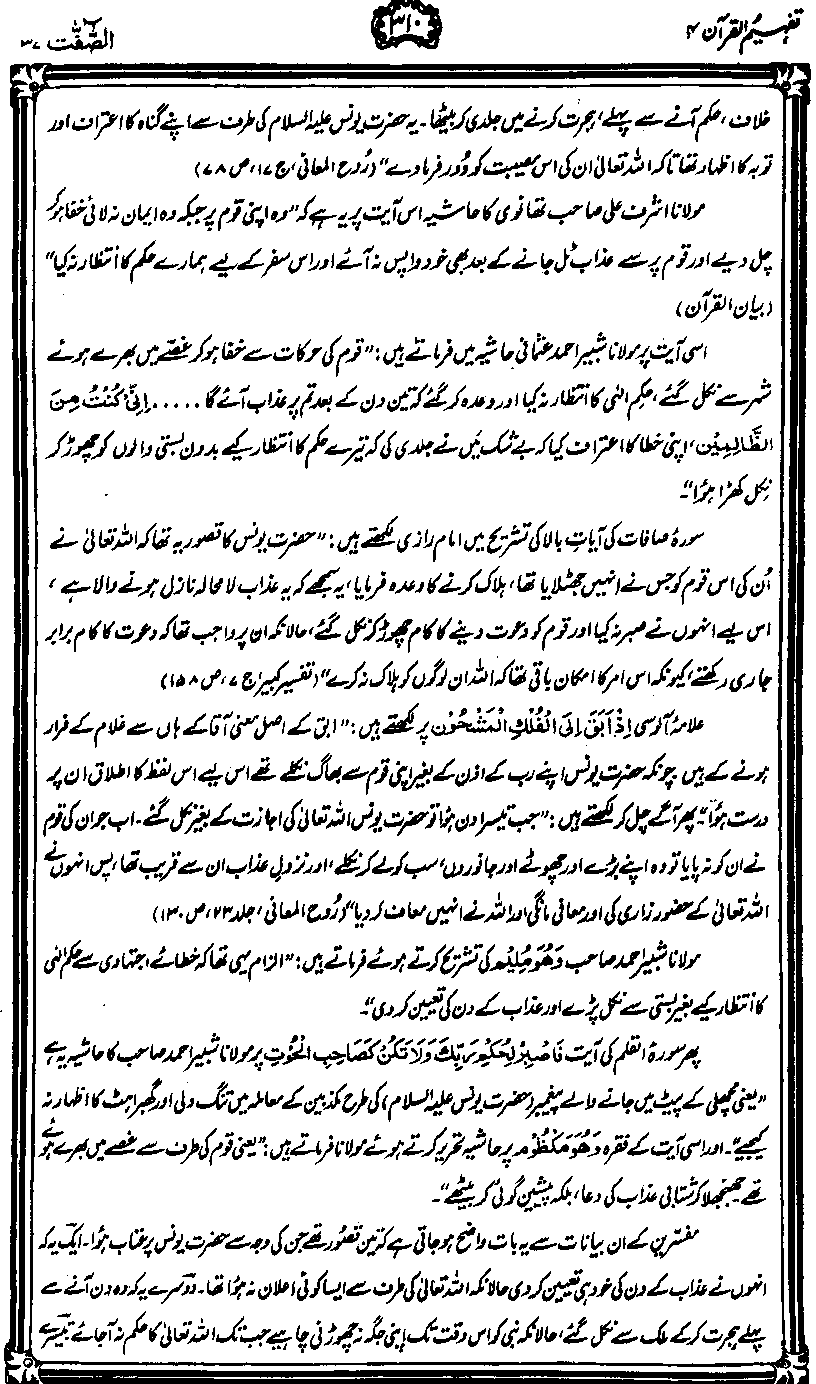 تفہیم القرآن ۴
۳۱۰
الصّٰفّٰت ۳۷
خلاف، حکم آنے سے پہلے، ہجرت کرنے میں جلدی کر بیٹھا۔ یہ حضرت یونس علیہ السلام کی طرف سے اپنے گناہ کا اعتراف اور
توبہ کا اظہار تھا تاکہ اللہ تعالیٰ ان کی اس مصیبت کو دُور فرما دے“ (رُوح المعانی، ج ۱۷، ص ۷۸)
مولانا اشرف علی صاحب تھانوی کا حاشیہ اس آیت پر یہ ہے کہ ”وہ اپنی قوم پر جبکہ وہ ایمان نہ لائی خفا ہو کر
چل دیے اور قوم پر سے عذاب ٹل جانے کے بعد بھی خود واپس نہ آئے اور اس سفر کے لیے ہمارے حکم کا انتظار نہ کیا“
(بیان القرآن)
اسی آیت پر مولانا شبیر احمد عثمانی حاشیہ میں فرماتے ہیں: ”قوم کی حرکات سے خفا ہو کر غصّے میں بھرے ہوئے
شہر سے نکل گئے، حکمِ الٰہی کا انتظار نہ کیا اور وعدہ کر گئے کہ تین دن کے بعد تم پر عذاب آئے گا ..... اِنِّیْ کُنْتُ مِنَ
الظّٰلِمِیْن، اپنی خطا کا اعتراف کیا کہ بے شک میں نے جلدی کی کہ تیرے حکم کا انتظار کیے بدون بستی والوں کو چھوڑ کر
نکل کھڑا ہوُا“۔
سورۂ صافات کی آیاتِ بالا کی تشریح میں امام رازی لکھتے ہیں: ”حضرت یونس کا قصور یہ تھا کہ اللہ تعالیٰ نے
اُن کی اس قوم کو جس نے انہیں جھٹلایا تھا، ہلاک کرنے کا وعدہ فرمایا، یہ سمجھے کہ یہ عذاب لا محالہ نازل ہونے والا ہے،
اس لیے انہوں نے صبر نہ کیا اور قوم کو دعوت دینے کا کام چھوڑ کر نکل گئے، حالانکہ ان پر واجب تھا کہ دعوت کا کام برابر
جاری رکھتے، کیونکہ اس امر کا امکان باقی تھا کہ اللہ ان لوگوں کو ہلاک نہ کرے“ (تفسیر کبیر، ج ۷، ص ۱۵۸)
علامہ آلوسی اِذْ اَبَقَ اِلَی الْفُلْکِ الْمَشْحُوْن پر لکھتے ہیں: ”ابق کے اصل معنی آقا کے ہاں سے غلام کے فرار
ہونے کے ہیں۔ چونکہ حضرت یونس اپنے رب کے اذن کے بغیر اپنی قوم سے بھاگ نکلے تھے اس لیے اس لفظ کا اطلاق ان پر
درست ہوُا“۔ پھر آگے چل کر لکھتے ہیں: ”جب تیسرا دن ہوُا تو حضرت یونس اللہ تعالیٰ کی اجازت کے بغیر نکل گئے۔ اب جو ان کی قوم
نے ان کو نہ پایا تو وہ اپنے بڑے اور چھوٹے اور جانوروں، سب کو لے کر نکلے، اور نزولِ عذاب ان سے قریب تھا، پس انہوں نے
اللہ تعالیٰ کے حضور زاری کی اور معافی مانگی اور اللہ نے انہیں معاف کر دیا“ (رُوح المعانی، جلد ۲۳، ص ۱۳۰)
مولانا شبیر احمد صاحب وَھُوَ مُلِیْم کی تشریح کرتے ہوئے فرماتے ہیں: ”الزام یہی تھا کہ خطائے اجتہادی سے حکمِ الٰہی
کا انتظار کیے بغیر بستی سے نکل پڑے اور عذاب کے دن کی تعیین کر دی“۔
پھر سورۃ القلم کی آیت فَاصْبِرْ لِحُکْمِ رَبِّکَ وَلَا تَکُنْ کَصَاحِبِ الْحُوْتِ پر مولانا شبیر احمد صاحب کا حاشیہ یہ ہے
”یعنی مچھلی کے پیٹ میں جانے والے پیغمبر (حضرت یونس علیہ السلام) کی طرح مکذبین کے معاملہ میں تنگ دلی اور گھبراہٹ کا اظہار نہ
کیجیے“۔ اور اسی آیت کے فقرہ وَھُوَ مَکْظُوْم پر حاشیہ تحریر کرتے ہوئے مولانا فرماتے ہیں: ”یعنی قوم کی طرف سے غصّے میں بھرے ہوئے
تھے جھنجھلا کر شتابی عذاب کی دعا، بلکہ پیشین گوئی کر بیٹھے“۔
مفسّرین کے ان بیانات سے یہ بات واضح ہو جاتی ہے کہ تین قصور تھے جن کی وجہ سے حضرت یونس پر عتاب ہوُا۔ ایک یہ کہ
انہوں نے عذاب کے دن کی خود ہی تعیین کر دی حالانکہ اللہ تعالیٰ کی طرف سے ایسا کوئی اعلان نہ ہوُا تھا۔ دوسرے یہ کہ وہ دن آنے سے
پہلے ہجرت کر کے ملک سے نکل گئے، حالانکہ نبی کو اس وقت تک اپنی جگہ نہ چھوڑنی چاہیے جب تک اللہ تعالیٰ کا حکم نہ آ جائے۔ تیسرے